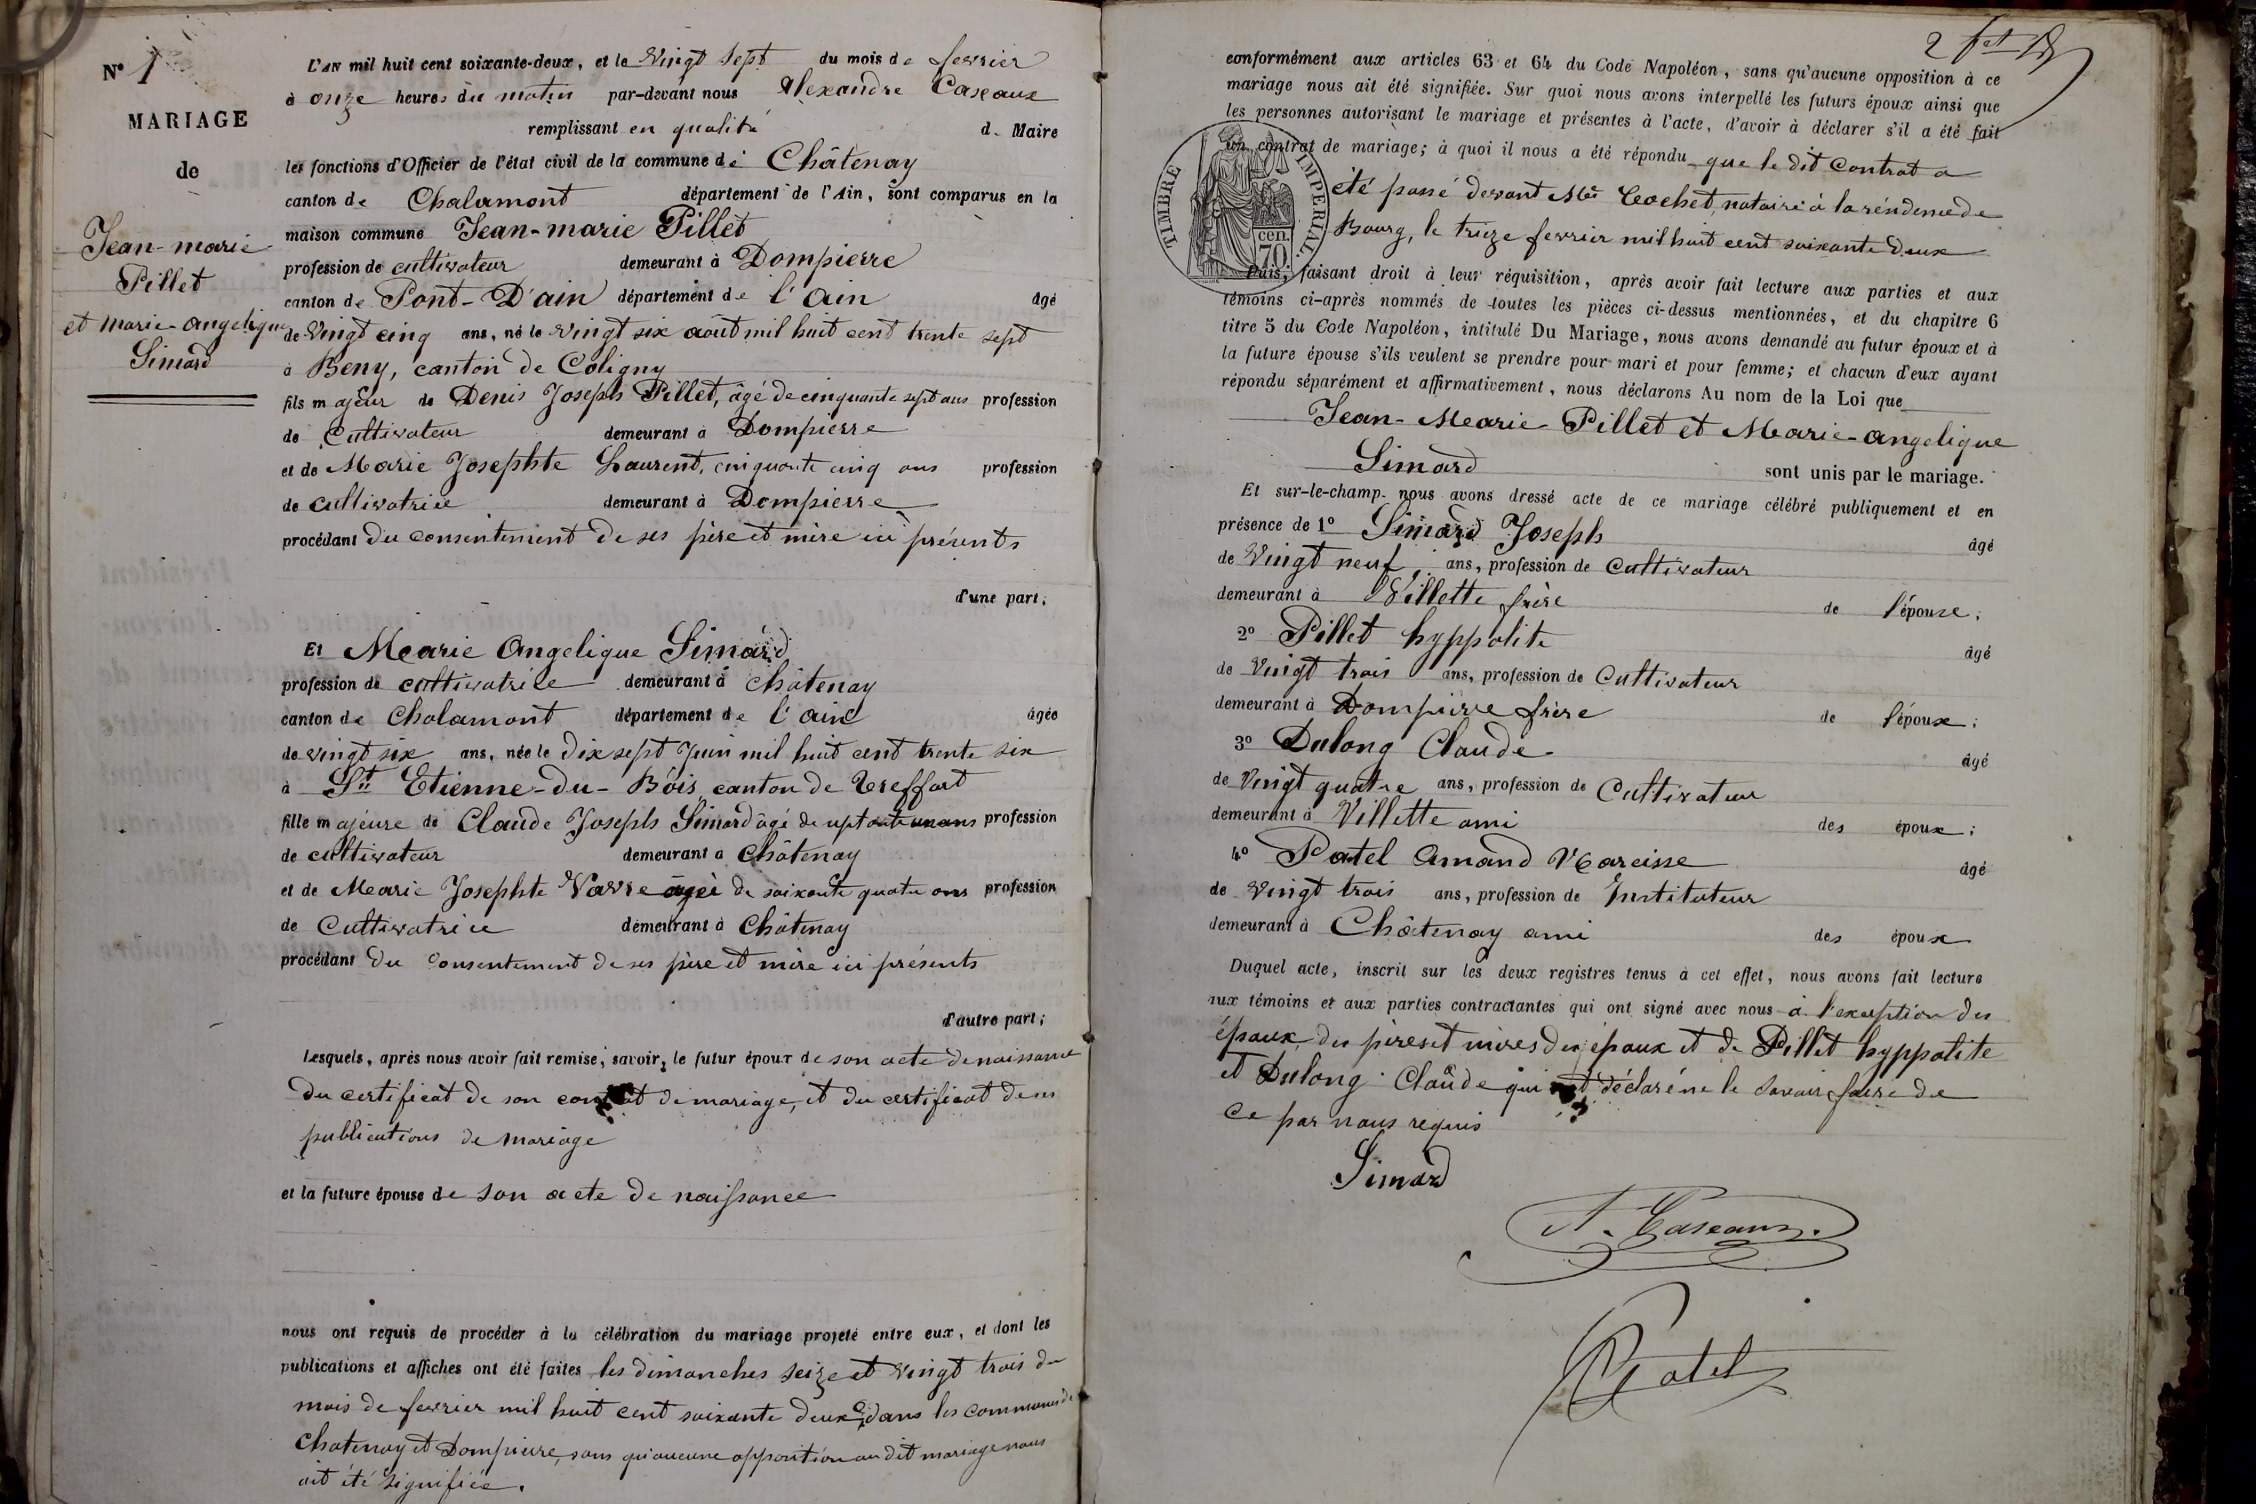 N° 1
MARIAGE
de
Jean-marie
Pillet
et Marie-angelique
Simard
L'AN mil huit cent soixante-deux, et le Vingt Sept du mois de fevrier
à onze heures du matin par-devant nous Alexandre Caseaux
remplissant en qualité de Maire
les fonctions d'Officier de l'état civil de la commune de Châtenay
canton de Chalamont département de l'Ain, sont comparus en la
maison commune Jean-marie Pillet
profession de cultivateur demeurant à Dompierre
canton de Pont-D'ain département de l'Ain âgé
de Vingt cinq ans, né le Vingt six août mil huit cent trente sept
à Beny, canton de Coligny
fils majeur de Denis Joseph Pillet, âgé de cinquante sept ans profession
de Cultivateur demeurant à Dompierre
et de Marie Josephte Laurent, cinquante cinq ans profession
de cultivatrice demeurant à Dompierre
procédant du consentement de ses père et mère ici présents
d'une part;
Et Marie Angelique Simard
profession de cultivatrice demeurant à Châtenay
canton de Chalamont département de l'ain âgée
de vingt six ans, née le dix sept Juin mil huit cent trente six
à St Etienne-du-Bois, canton de Treffort
fille majeure de Claude Joseph Simard âgé de ans profession
de cultivateur demeurant à Châtenay
et de Marie Josephte âgée de soixante quatre ans profession
de Cultivatrice demeurant à Châtenay
procédant du Consentement de ses père et mère ici présents
d'autre part;
Lesquels, après nous avoir fait remise, savoir, le futur époux de son acte de naissance
du certificat de son contrat de mariage, et du certificat de ses
publications de mariage
et la future épouse de son acte de naissance
nous ont requis de procéder à la célébration du mariage projeté entre eux, et dont les
publications et affiches ont été faites les dimanches seize et vingt trois du
mois de fevrier mil huit cent soixante deux dans les communes de
Chatenay et Dompierre, sans qu'aucune opposition au dit mariage nous
ait été signifiée.
2
conformément aux articles 63 et 64 du Code Napoléon, sans qu'aucune opposition à ce
mariage nous ait été signifiée. Sur quoi nous avons interpellé les futurs époux ainsi que
les personnes autorisant le mariage et présentes à l'acte, d'avoir à déclarer s'il a été fait
un contrat de mariage; à quoi il nous a été répondu que le dit Contrat a
été passé devant Me Cochet, notaire à la résidence de
Bourg, le treize fevrier mil huit cent soixante deux
TIMBRE IMPERIAL
70 cen.
Puis, faisant droit à leur réquisition, après avoir fait lecture aux parties et aux
témoins ci-après nommés de toutes les pièces ci-dessus mentionnées, et du chapitre 6
titre 5 du Code Napoléon, intitulé Du Mariage, nous avons demandé au futur époux et à
la future épouse s'ils veulent se prendre pour mari et pour femme; et chacun d'eux ayant
répondu séparément et affirmativement, nous déclarons Au nom de la Loi que
Jean-Marie Pillet et Marie-angelique
Simard sont unis par le mariage.
Et sur-le-champ nous avons dressé acte de ce mariage célébré publiquement et en
présence de 1° Simard Joseph âgé
de Vingt neuf ans, profession de Cultivateur
demeurant à Villette frère de l'épouse;
2° Pillet hyppolite âgé
de Vingt trois ans, profession de Cultivateur
demeurant à Dompierre frère de l'époux;
3° Dulong Claude âgé
de Vingt quatre ans, profession de Cultivateur
demeurant à Villette ami des époux;
4° Patel Amand Narcisse âgé
de Vingt trois ans, profession de Instituteur
demeurant à Châtenay ami des époux
Duquel acte, inscrit sur les deux registres tenus à cet effet, nous avons fait lecture
aux témoins et aux parties contractantes qui ont signé avec nous à l'exception des
époux, des pères et mères des époux et de Pillet hyppolite
et Dulong Claude qui ont déclaré ne le savoir faire de
ce par nous requis
Simard
A. Caseaux
Patel